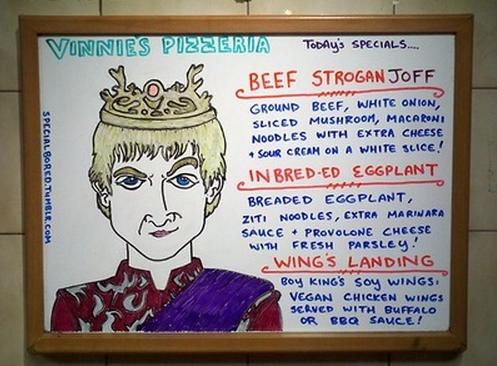 VINNIE'S PIZZERIA
TODAY'S SPECIALS....
BEEF STROGANJOFF
GROUND BEEF, WHITE ONION,
SLICED MUSHROOM, MACARONI
NOODLES WITH EXTRA CHEESE
+ SOUR CREAM ON A WHITE SLICE!
INBRED-ED EGGPLANT
BREADED EGGPLANT,
ZITI NOODLES, EXTRA MARINARA
SAUCE + PROVOLONE CHEESE
WITH FRESH PARSLEY!
WING'S LANDING
BOY KING'S SOY WINGS:
VEGAN CHICKEN WINGS
SERVED WITH BUFFALO
OR BBQ SAUCE!
SPECIALBORED.TUMBLR.COM